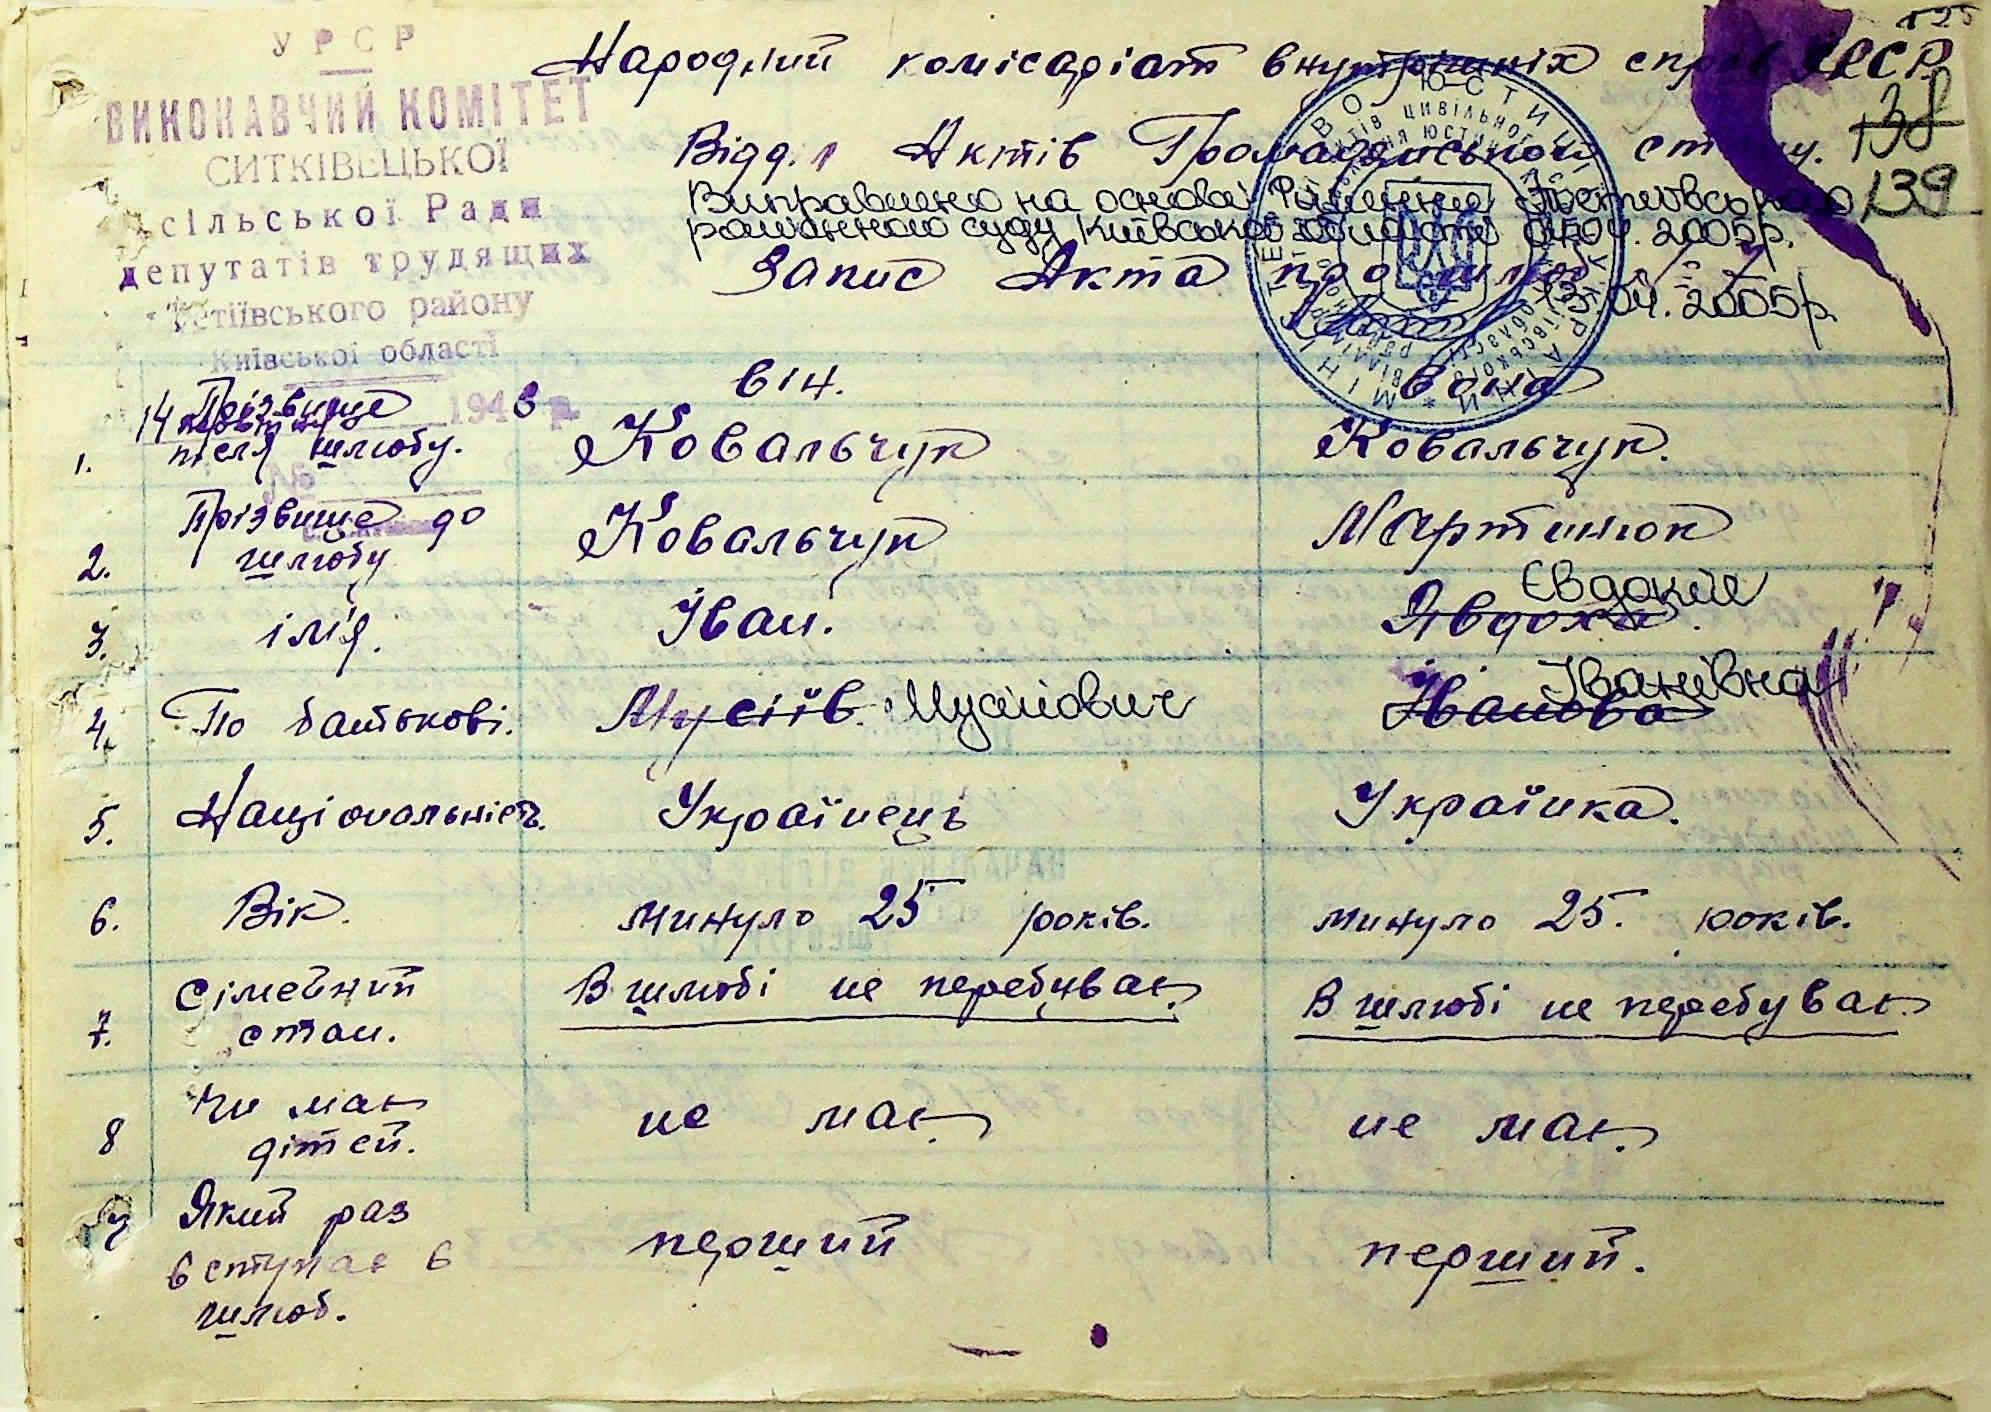 УРСР
ВИКОНАВЧИЙ КОМІТЕТ
СИТКІВЕЦЬКОЇ
сільської Ради
депутатів трудящих
тетіївського району
Київської області
194 р.
№
125
138
139
Народний комісаріат внутрішніх справ УРСР
Відділ Актів Громадянського стану.
Виправлено на основі Рішення Тетіївського
районного суду Київської області 01.04.2005р.
Запис Акта про шлюб
13.04.2005р.
він. вона
1. Прізвище після шлюбу. Ковальчук Ковальчук.
2. Прізвище до шлюбу Ковальчук Мартинюк
3. ім'я. Іван. Явдоха. Євдокія
4. По батькові. Мусіїв. Мусійович Іванова Іванівна
5. Національність. Українець Українка.
6. Вік. минуло 25 років. минуло 25. років.
7. Сімейний стан. В шлюбі не перебуває. В шлюбі не перебуває.
8 Чи має дітей. не має. не має.
9 Який раз вступає в шлюб. перший перший.